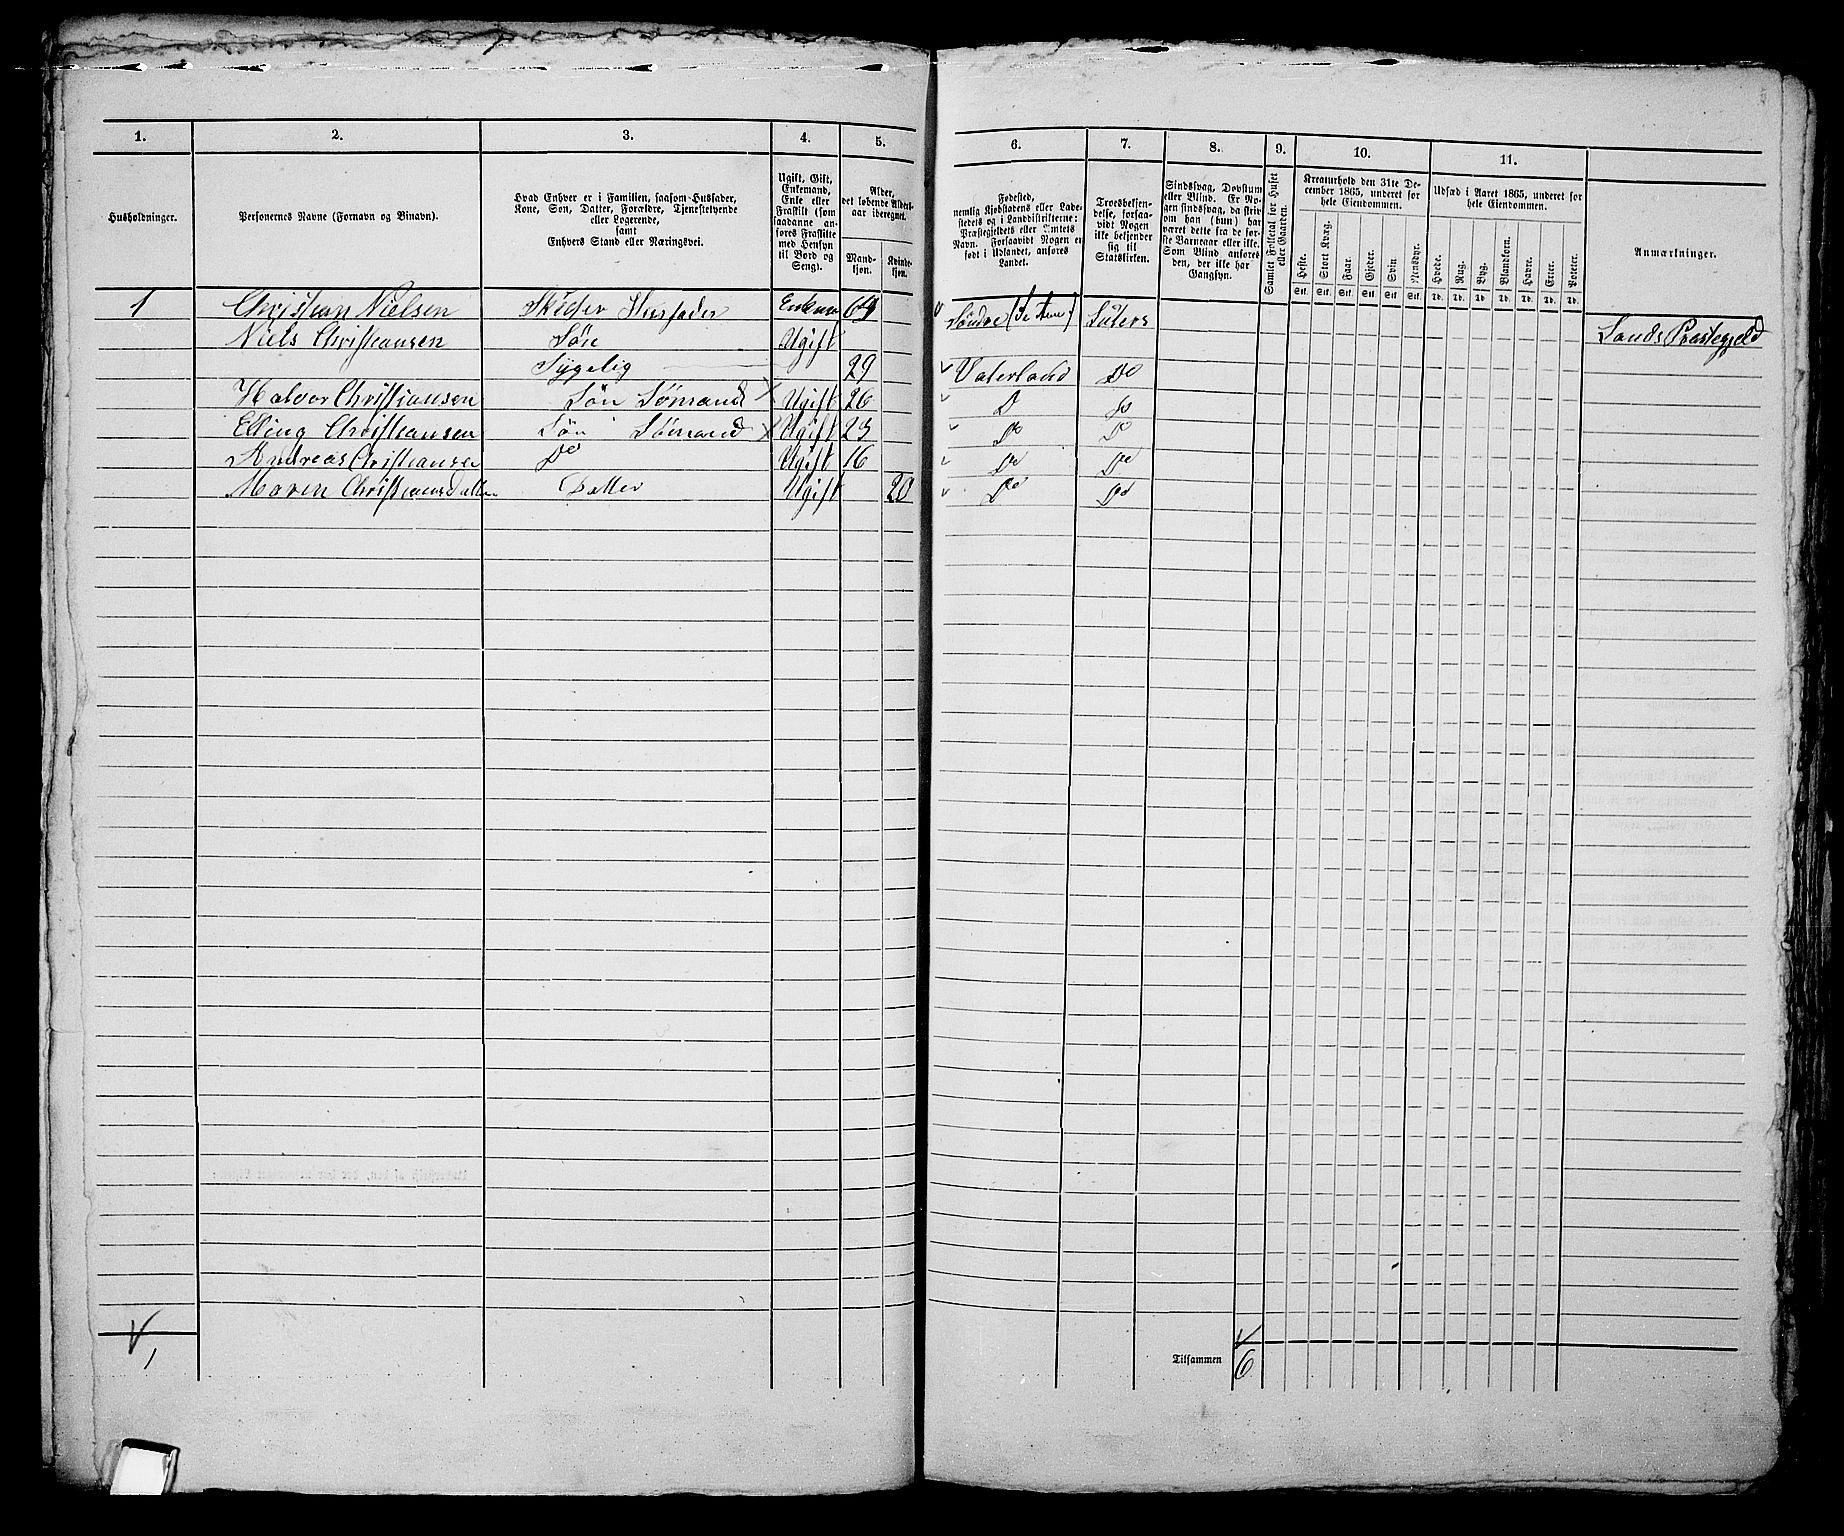 1. 2. 3. 4. 5. 6. 7. 8. 9. 10. 11.
Husholdninger.
Personernes Navne (Fornavn og Binavn).
Hvad Enhver er i Familien, saasom Husfader,
Kone, Søn, Datter, Forældre, Tjenestetyende
eller Logerende,
samt
Enhvers Stand eller Næringsvei.
Ugift, Gift,
Enkemand,
Enke eller
Fraskilt (som
saadanne an-
føres Fraskilte
med Hensyn
til Bord og
Seng).
Alder,
det løbende Alders-
aar iberegnet.
Mand-
kjøn.
Kvinde-
kjøn.
Fødested,
nemlig Kjøbstadens eller Lade-
stedets og i Landdistrikterne:
Præstegjeldets eller Amtets
Navn. Forsaavidt Nogen er
født i Udlandet, anføres
Landet.
Troesbekjen-
delse, forsaa-
vidt Nogen
ikke bekjender
sig til
Statskirken.
Sindssvag, Døvstum
eller Blind. Er No-
gen sindssvag, da skriv
om han (hun) har
været dette fra de før-
ste Barneaar eller ikke.
Som Blind anføres
den, der ikke har
Gangsyn.
Samlet Folketal for Huset
eller Gaarden.
Kreaturhold den 31te De-
cember 1865, underet for
hele Eiendommen.
Heste. Stort Kvæg. Faar. Gjeder. Svin. Rensdyr.
Stk. Stk. Stk. Stk. Stk. Stk.
Udsæd i Aaret 1865, underet for
hele Eiendommen.
Hvede. Rug. Byg. Blandkorn. Havre. Erter. Poteter.
Td. Td. Td. Td. Td. Td. Td.
Anmærkninger.
1 Christian Nielsen Husfader Enkem 64 Søndre Luters Sands Præstegjeld
Niels Christiansen Søn Ugift
Sygelig 29 Vaterland Do
Halvor Christiansen Søn Sømand X Ugift 26 D Do
Elling Christiansen Søn Sømand X Ugift 23 Do Do
Andreas Christiansen Do Ugift 16 Do Do
Maren Christiansdatter Datter Ugift 20 Do Do
Tilsammen 6